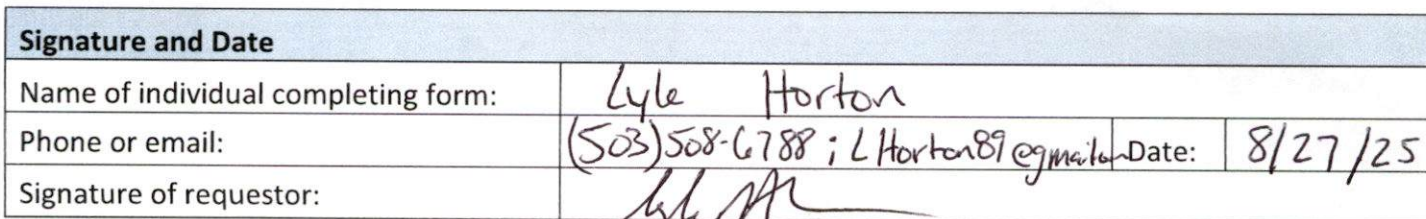 Signature and Date
Name of individual completing form: Lyle Horton
Phone or email: (503)508-6788 ; LHorton89@gmail.com Date: 8/27/25
Signature of requestor: